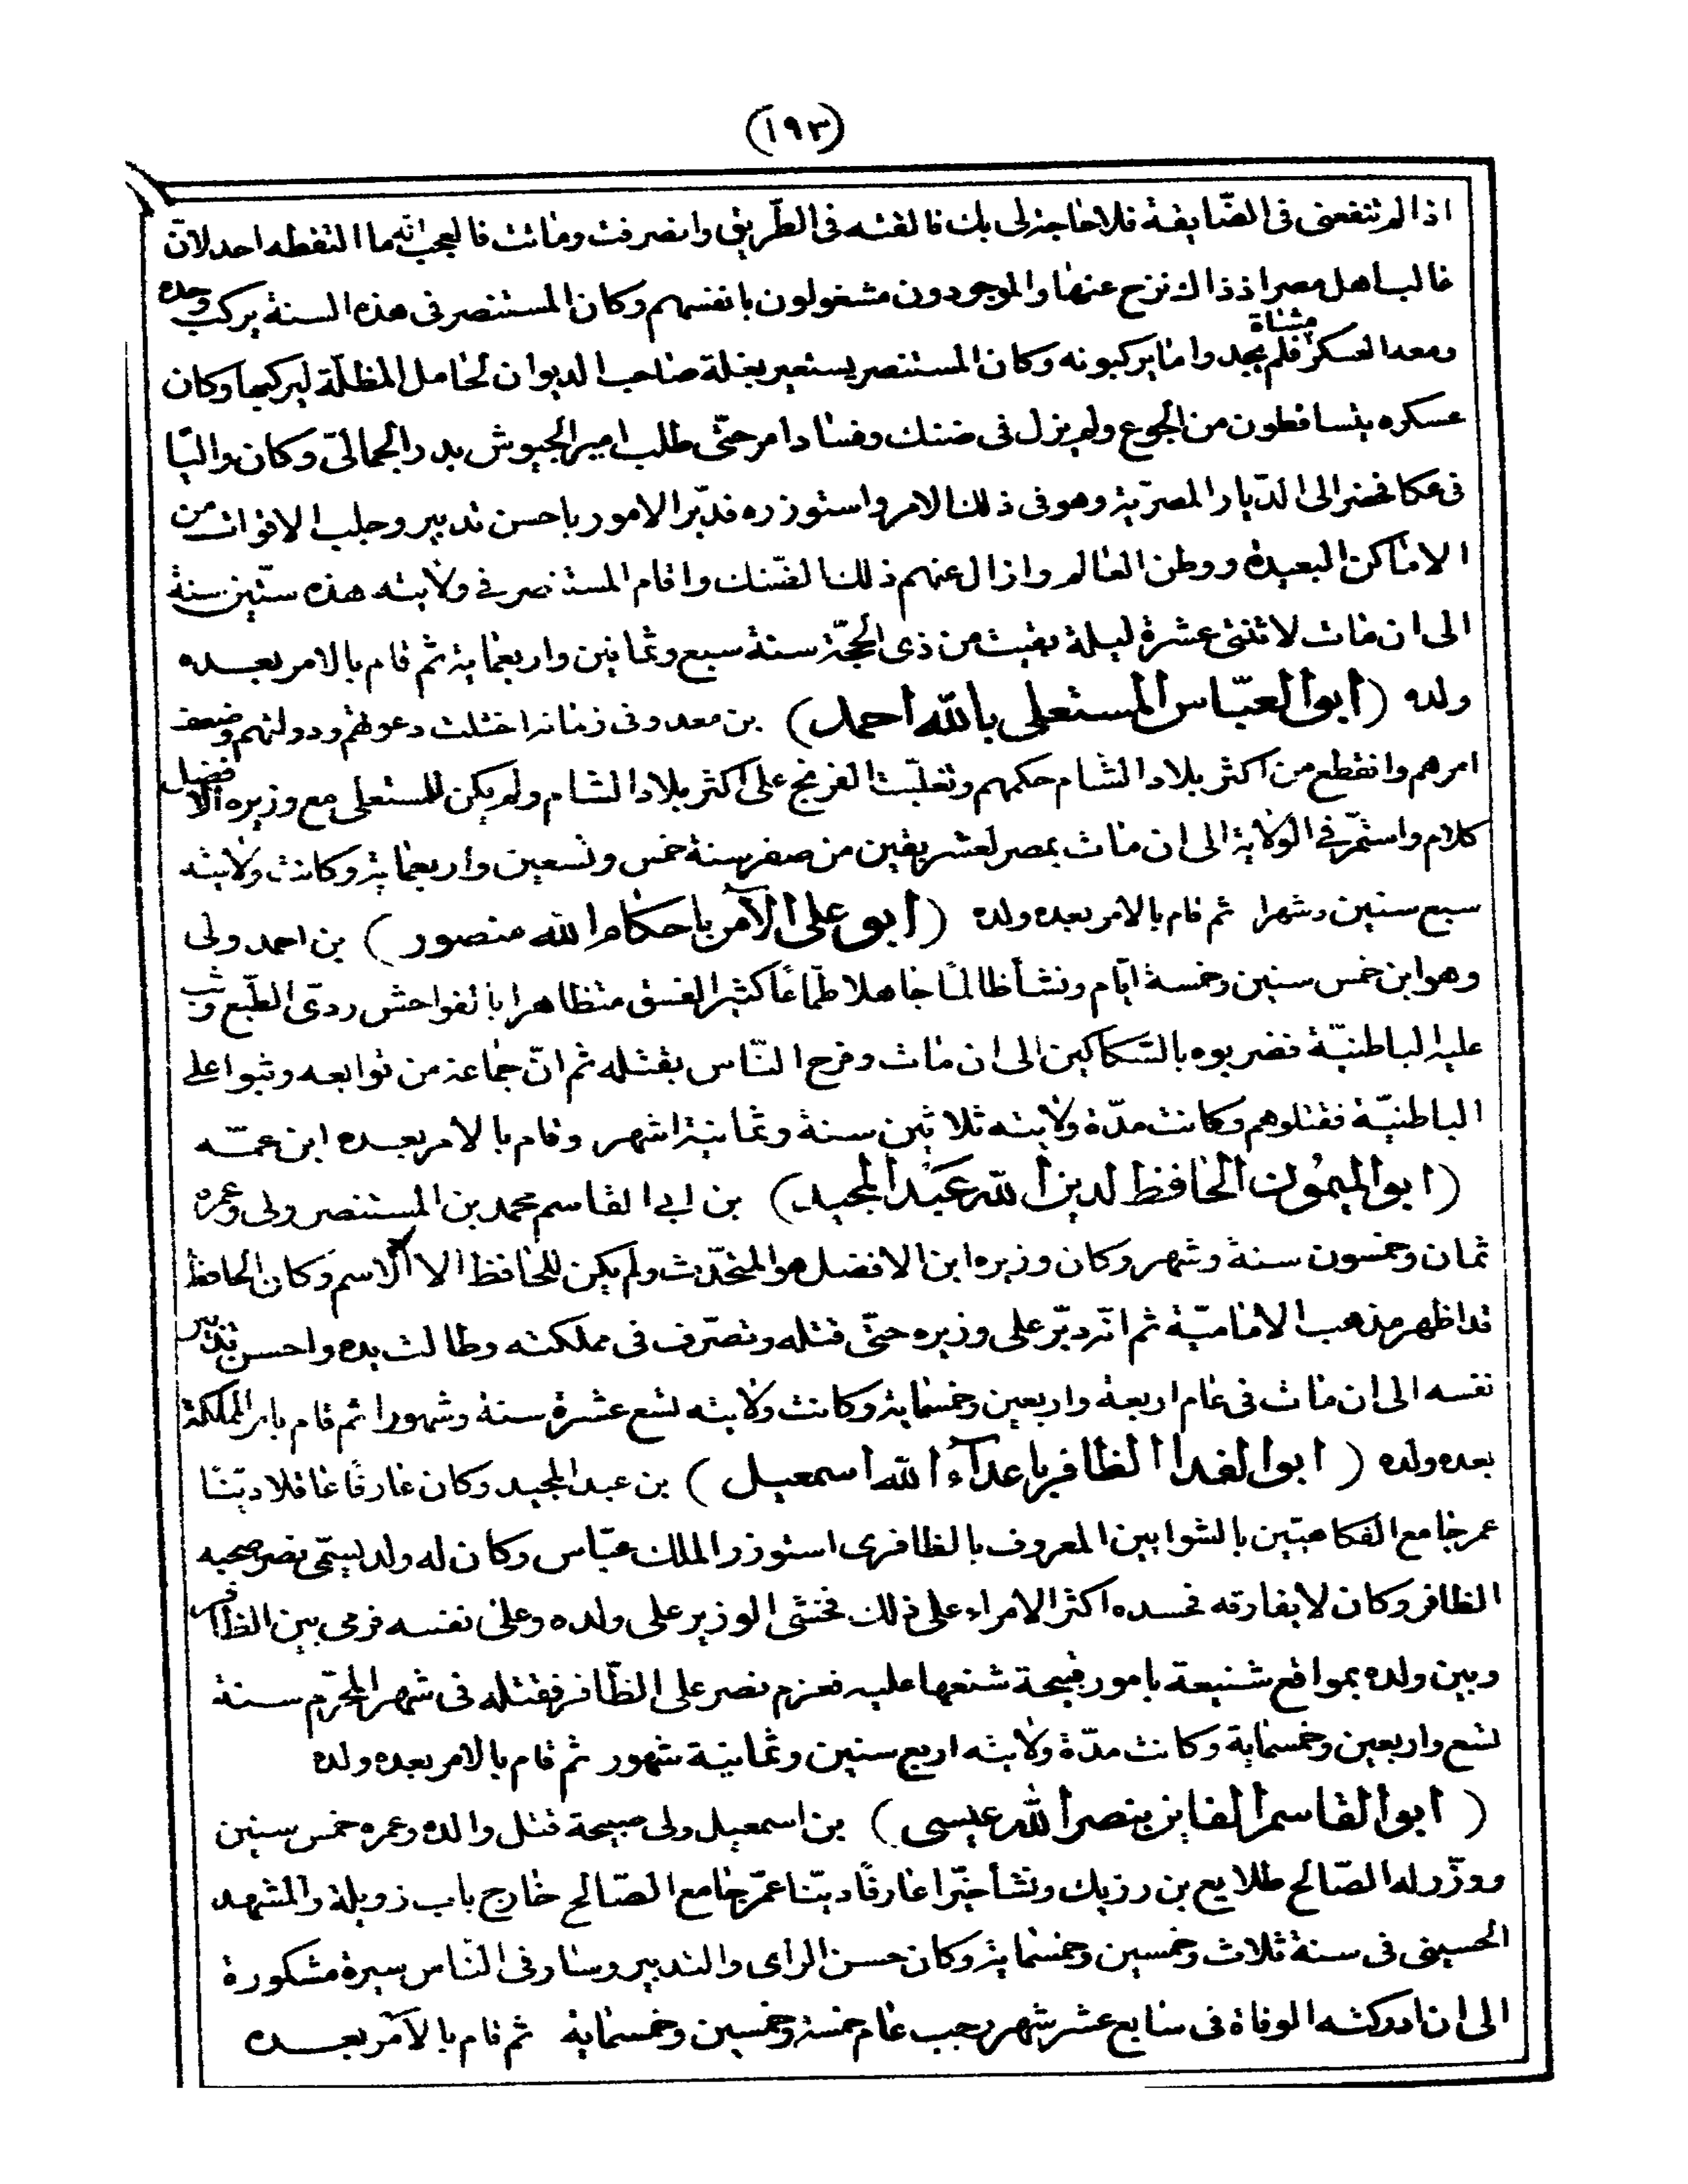 (١٩٣)
اذا لم تنفعنى فى الضّايقة فلا حاجة لى بك فالقته فى الطّريق وانصرفت وماتت فالعجب انّه ما التقطه احد لانّ
غالب اهل مصر اذ ذاك نزح عنها والموجودون مشغولون بانفسهم وكان المستنصر فى هذه السنة يركب وحده
ومعه العسكر مشاة فلم يجدوا ما يركبونه وكان المستنصر يستعير بغلة صاحب الديوان لحامل المظلّة ليركبها وكان
عسكره يتساقطون من الجوع ولم يزل فى ضنك وفساد امر حتّى طلب امير الجيوش بدر الجمالىّ وكان واليًا
فى عكا فحضر الى الدّيار المصرّية وهو فى ذلك الامر واستوزره فدبّر الامور باحسن تدبير وجلب الاقوات من
الاماكن البعيدة ووطن العالم وازال عنهم ذلك الضّنك واقام المستنصر فى ولايته هذه ستّين سنة
الى ان مات لاثنتى عشرة ليلة بقيت من ذى الحجّة سنة سبع وثمانين واربعماية ثم قام بالامر بعده
ولده (ابو العبّاس المستعلى بالله احمد) بن معد وفى زمانه اختلت دعوتهم ودولتهم وضعف
امرهم وانقطع من اكثر بلاد الشام حكمهم وتغلّبت الفرنج على اكثر بلاد الشام ولم يكن للمستعلى مع وزيره الافضل
كلام واستمّر فى الولاية الى ان مات بمصر لعشر بقين من صفر سنة خمس وتسعين واربعماية وكانت ولايته
سبع سنين وشهرا ثم قام بالامر بعده ولده (ابو على الآمر باحكام الله منصور) بن احمد ولى
وهو ابن خمس سنين وخمسة ايّام ونشأ ظالمًا جاهلا طمّاعًا كثير الفسق متظاهرا بالفواحش ردىّ الطّبع وثب
عليه الباطنيّة فضربوه بالسّكاكين الى ان مات وفرح النّاس بقتله ثم انّ جماعة من توابعه وثبوا على
الباطنيّة فقتلوهم وكانت مدّة ولايته ثلاثين سنة وثمانية اشهر وقام بالامر بعده ابن عمّه
(ابو الميمون الحافظ لدين الله عبد المجيد) بن ابى القاسم محمد بن المستنصر ولى وعمره
ثمان وخمسون سنة وشهر وكان وزيره ابن الافضل هو المتحدّث ولم يكن للحافظ الا الاسم وكان الحافظ
قد اظهر مذهب الاماميّة ثم انّه دبّر على وزيره حتّى قتله وتصرّف فى مملكته وطالت يده واحسن تدبير
نفسه الى ان مات فى عام اربعة واربعين وخمسماية وكانت ولايته تسع عشرة سنة وشهورا ثم قام بامر المملكة
بعده ولده (ابو الفدا الظافر باعدآء الله اسمعيل) بن عبد المجيد وكان عارفًا عاقلا ديّنًا
عمر جامع الفكاهيّين بالشوايين المعروف بالظافرى استوزر الملك عبّاس وكان له ولد يسمّى نصر صحبه
الظافر وكان لا يفارقه فحسده اكثر الامراء على ذلك فخشى الوزير على ولده وعلى نفسه فرمى بين الظافر
وبين ولده بمواقع شنيعة بامور قبيحة شنعها عليه فعزم نصر على الظّافر فقتله فى شهر المحرّم سنة
تسع واربعين وخمسماية وكانت مدّة ولايته اربع سنين وثمانية شهور ثم قام بالامر بعده ولده
(ابو القاسم الفايز بنصر الله عيسى) بن اسمعيل ولى صبيحة قتل والده وعمره خمس سنين
ووزّر له الصّالح طلايع بن رزيك ونشأ خيّرا عارفًا ديّنا عمّر جامع الصّالح خارج باب زويلة والمشهد
الحسينى فى سنة ثلاث وخمسين وخمسماية وكان حسن الراى والتدبير وسار فى النّاس سيرة مشكورة
الى ان ادركته الوفاة فى سابع عشر شهر رجب عام خمسة وخمسين وخمسماية ثم قام بالآمر بعده